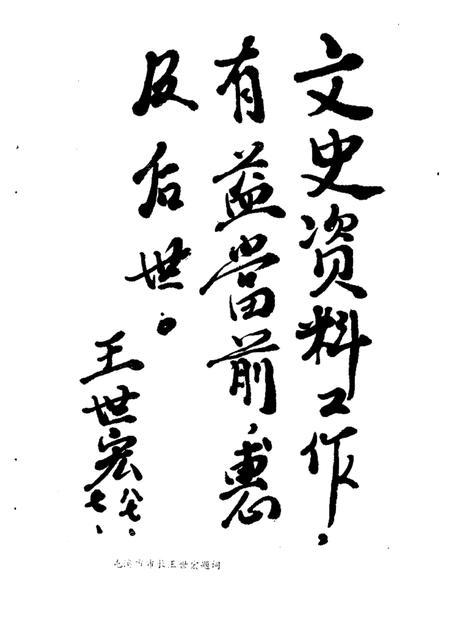 文史资料工作，
有益當前，惠
及后世。
王世宏
八七、七、
市市长王世宏题词